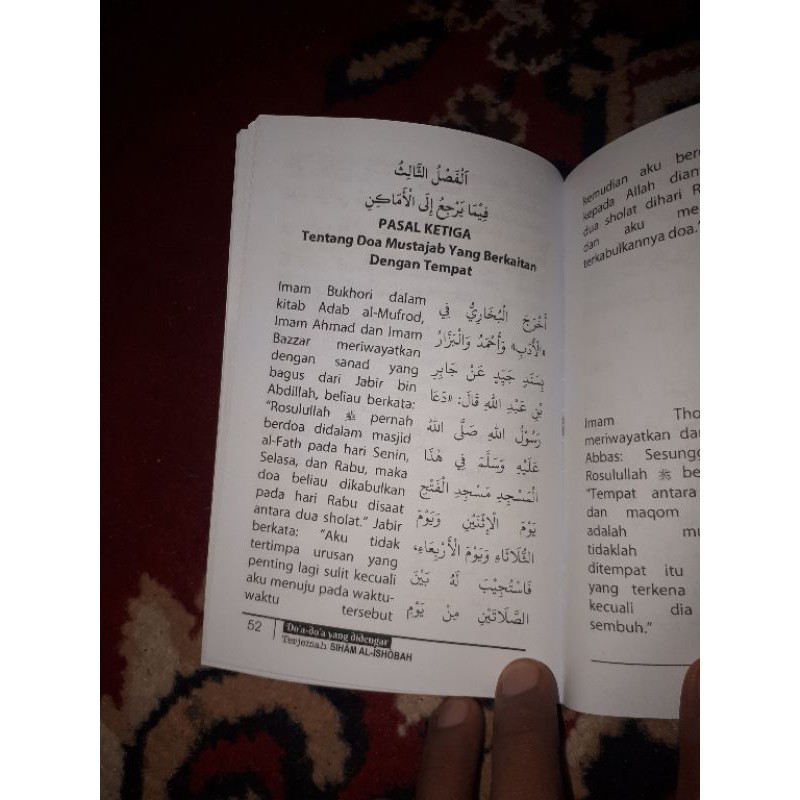 اَلْفَصْلُ الثَّالِثُ
فِيْمَا يَرْجِعُ إِلَى الْأَمَاكِنِ
PASAL KETIGA
Tentang Doa Mustajab Yang Berkaitan
Dengan Tempat
Imam Bukhori dalam
kitab Adab al-Mufrod,
Imam Ahmad dan Imam
Bazzar meriwayatkan
dengan sanad yang
bagus dari Jabir bin
Abdillah, beliau berkata:
"Rosulullah ﷺ pernah
berdoa didalam masjid
al-Fath pada hari Senin,
Selasa, dan Rabu, maka
doa beliau dikabulkan
pada hari Rabu disaat
antara dua sholat." Jabir
berkata: "Aku tidak
tertimpa urusan yang
penting lagi sulit kecuali
aku menuju pada waktu-
waktu tersebut
أَخْرَجَ الْبُخَارِيُّ فِي
«الْأَدَبِ» وَأَحْمَدُ وَالْبَزَّارُ
بِسَنَدٍ جَيِّدٍ عَنْ جَابِرِ
بْنِ عَبْدِ اللهِ قَالَ: «دَعَا
رَسُوْلُ اللهِ صَلَّى اللهُ
عَلَيْهِ وَسَلَّمَ فِي هٰذَا
الْمَسْجِدِ مَسْجِدِ الْفَتْحِ
يَوْمَ الْإِثْنَيْنِ وَيَوْمَ
الثُّلَاثَاءِ وَيَوْمَ الْأَرْبِعَاءِ،
فَاسْتُجِيْبَ لَهُ بَيْنَ
الصَّلَاتَيْنِ مِنْ يَوْمِ
52
Do'a-do'a yang didengar
Terjemah SIHAM AL-ISHOBAH
kemudian aku ber
kepada Allah dian
dua sholat dihari R
dan aku me
terkabulkannya doa."
Imam Tho
meriwayatkan da
Abbas: Sesungg
Rosulullah ﷺ be
"Tempat antara
dan maqom
adalah mu
tidaklah
ditempat itu
yang terkena
kecuali dia
sembuh."